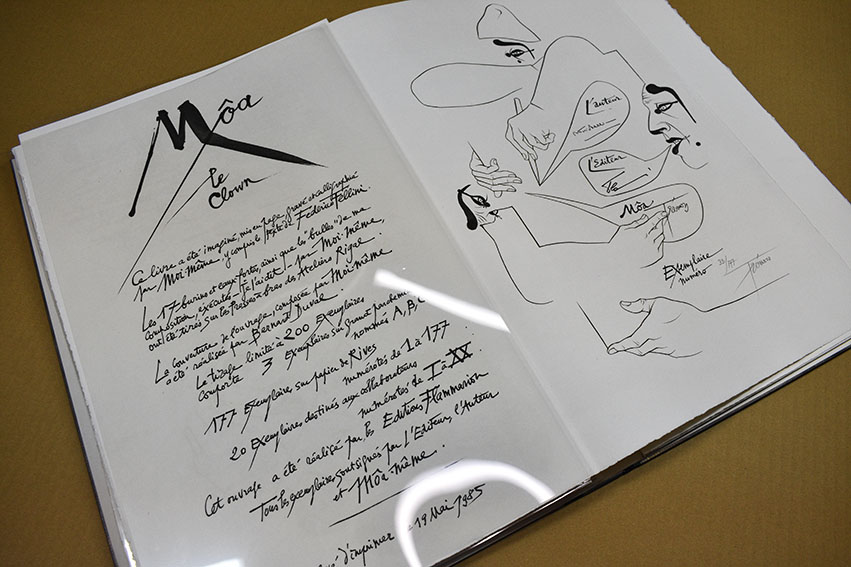 Môa
le
Clown
Ce livre a été imaginé, mis en page, gravé et calligraphié
par Moi-même, y compris le texte de Federico Fellini.
Les 17 burins et eaux-fortes, ainsi que les "bulles" de ma
composition, exécutés par Moi-même,
ont été tirés sur les Presses à bras des Ateliers Rigal.
La couverture de l'ouvrage, composée par Moi-même
a été réalisée par Bernard Duval.
Le tirage limité à 200 Exemplaires
comporte 3 Exemplaires sur grand parchemin
nommés A, B, C
177 Exemplaires sur papier de Rives
numérotés de 1 à 177
20 Exemplaires destinés aux collaborateurs
numérotés de I à XX.
Cet ouvrage a été réalisé par les Editions Flammarion
Tous les exemplaires sont signés par l'Editeur, l'Auteur
et Môa-même.
d'imprimer le 19 Mai 1985
L'auteur
L'Editeur
Môa
Exemplaire
numéro